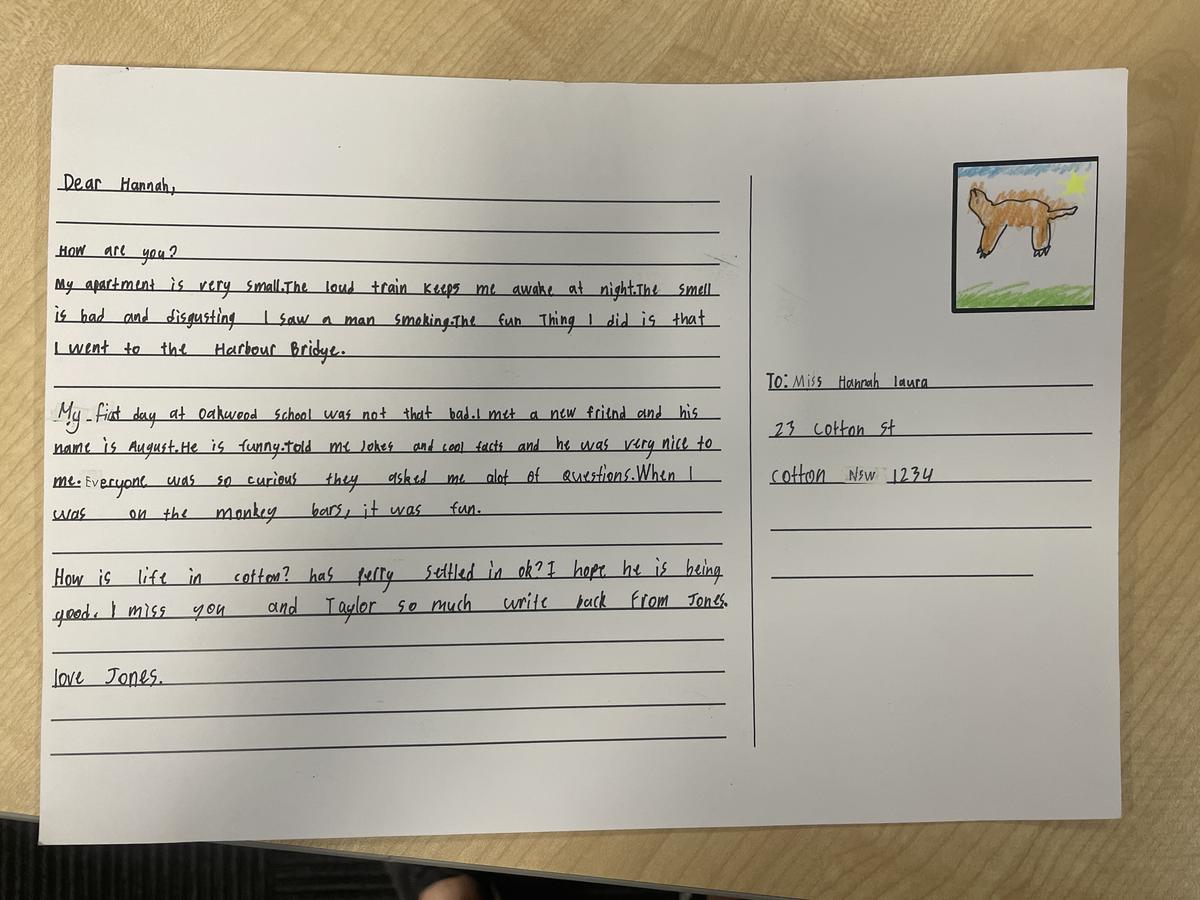 Dear Hannah,
How are you?
My apartment is very small.The loud train keeps me awake at night.The smell
is bad and disgusting I saw a man smoking.The fun Thing I did is that
I went to the Harbour Bridge.
My first day at Oakwood school was not that bad.I met a new friend and his
name is August.He is funny.Told me Jokes and cool facts and he was very nice to
me. Everyone was so curious they asked me alot of questions.When I
was on the monkey bars, it was fun.
How is life in cotton? has perry settled in ok? I hope he is being
good. I miss you and Taylor so much write back From Jones.
love Jones.
To: Miss Hannah laura
23 cotton st
cotton NSW 1234